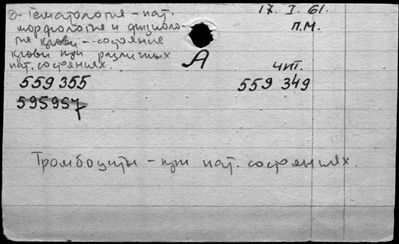 Гематология – пат. 17. I. 61.
морфология и физиоло- П.М.
гия крови – состояние
крови при различных
пат. состояниях. А чит.
559 355 559 349
595957
Тромбоциты – при пат. состояниях.